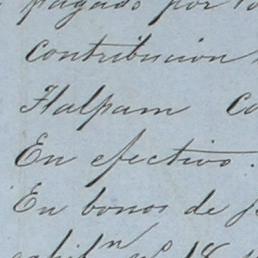 pagado por
contribucion
Tlalpam
En efectivo.
En bonos de
nº 18